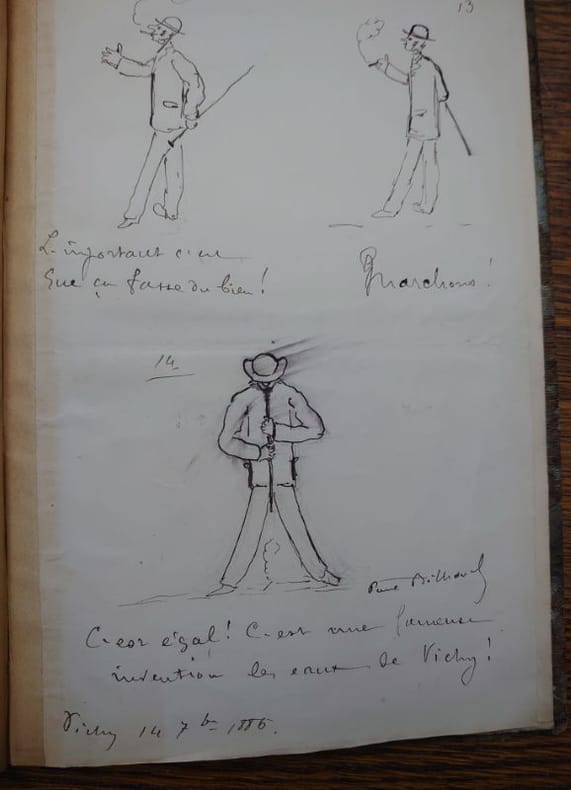 13
L'important c'est
Que ça fasse du bien!
Marchons!
14
Paul Bilhaud
C'est égal! C'est une fameuse
invention les eaux de Vichy!
Vichy 14 7bre 1886.